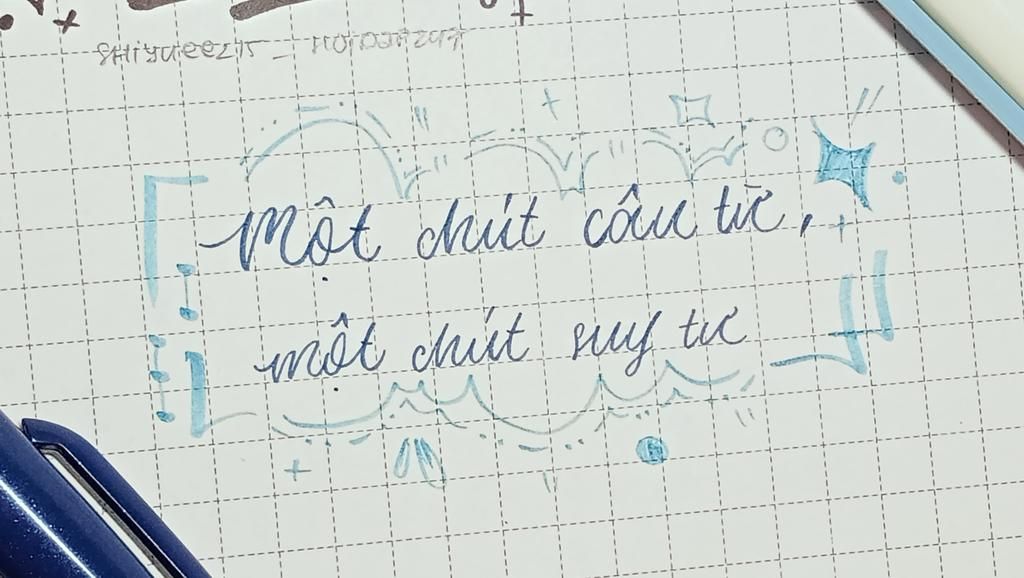 Một chút câu từ,
một chút suy tư